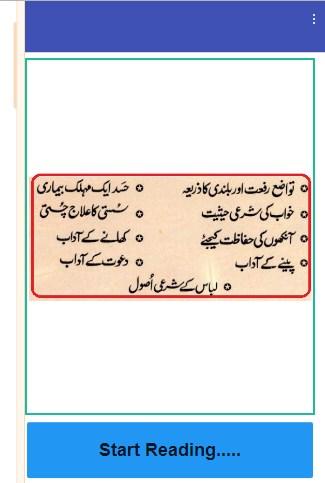 تواضع رفعت اور بلندی کا ذریعہ حسد ایک مہلک بیماری
خواب کی شرعی حیثیت سستی کا علاج چستی
آنکھوں کی حفاظت کیجئے کھانے کے آداب
پینے کے آداب دعوت کے آداب
لباس کے شرعی اُصول
Start Reading.....